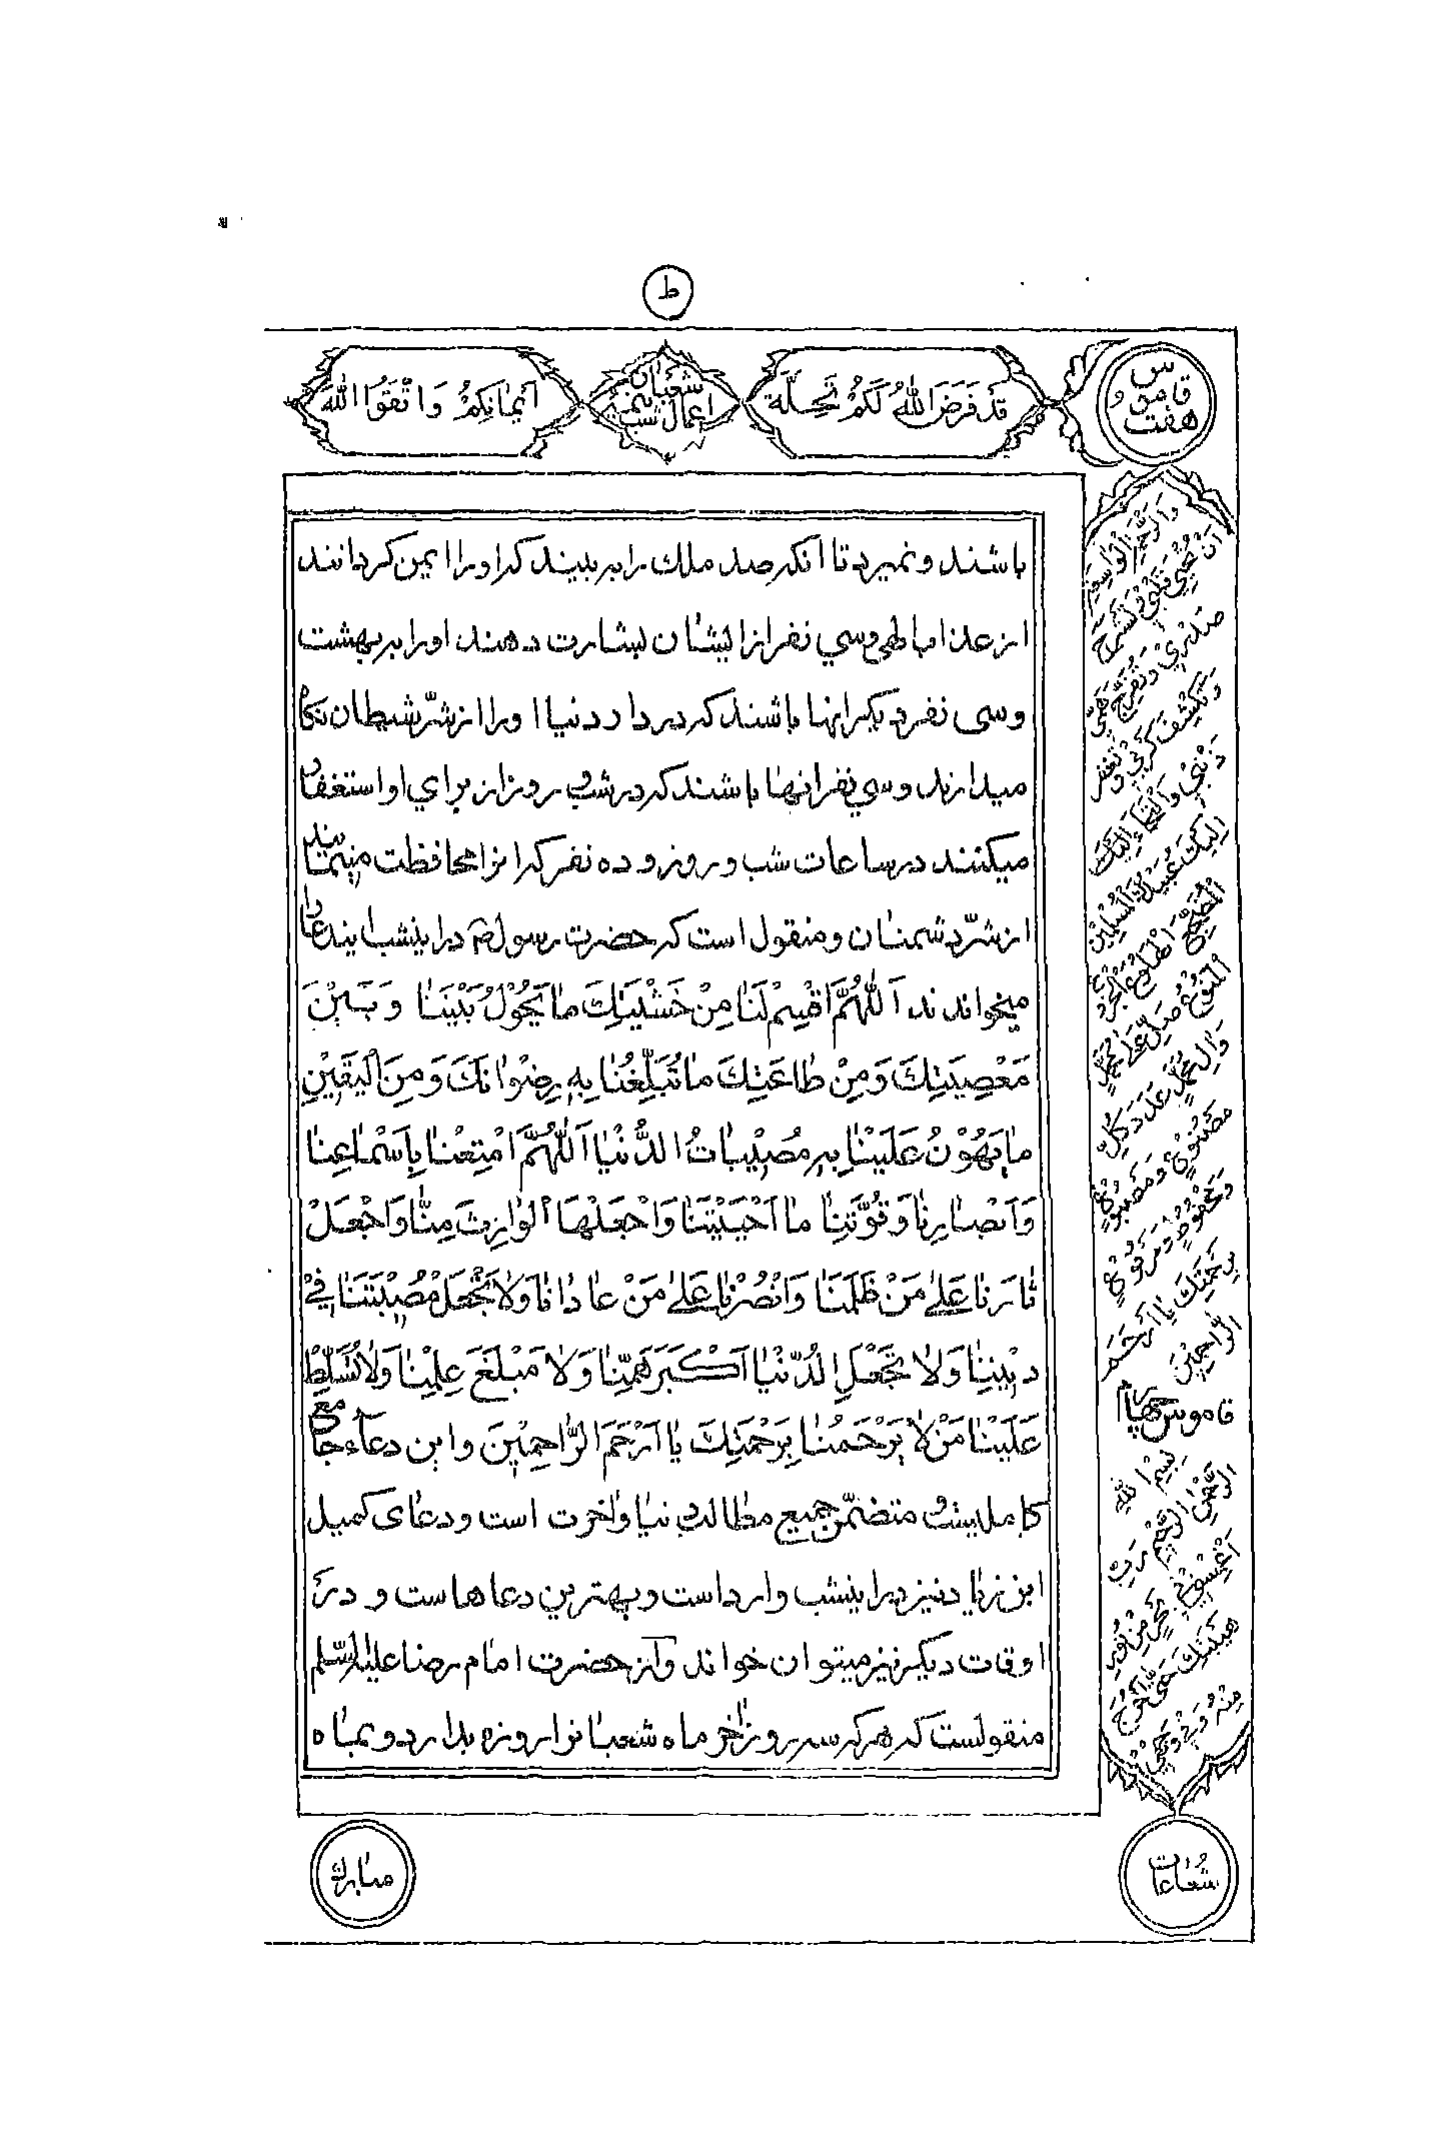 ط
قاموس
هفت
قَدْ فَرَضَ اللّٰهُ لَكُمْ تَحِلَّةَ
شعبان
اعمال شب نیمه
اَیْمٰانِکُمْ وَ اتَّقُوا اللّٰهَ
باشند و نمیرد تا آنکه صد ملك را به بیند که او را ایمن کردانند
از عذاب الهی و سی نفر از ایشان بشارت دهند او را به بهشت
و سی نفر دیگر انها باشند که در دار دنیا او را از شرّ شیطان نگاه
میدارند و سی نفر انها باشند که در شب و روز از برای او استغفار
میکنند در ساعات شب و روز و ده نفر که او را محافظت مینمایند
از شرّ دشمنان و منقول است که حضرت رسول ص در اینشب ایندعا را
میخواندند اَللّٰهُمَّ اقْسِمْ لَنٰا مِنْ خَشْیَتِكَ مٰا یَحُوْلُ بَیْنَنٰا وَ بَیْنَ
مَعْصِیَتِكَ وَ مِنْ طٰاعَتِكَ مٰا تُبَلِّغُنٰا بِهِ رِضْوٰانَكَ وَ مِنَ الْیَقِیْنِ
مٰا یَهُوْنُ عَلَیْنٰا بِهِ مُصِیْبٰاتُ الدُّنْیٰا اَللّٰهُمَّ اَمْتِعْنٰا بِاَسْمٰاعِنٰا
وَ اَبْصٰارِنٰا وَ قُوَّتِنٰا مٰا اَحْیَیْتَنٰا وَ اجْعَلْهَا الْوٰارِثَ مِنّٰا وَ اجْعَلْ
ثٰارَنٰا عَلیٰ مَنْ ظَلَمَنٰا وَ انْصُرْنٰا عَلیٰ مَنْ عٰادٰانٰا وَ لٰا تَجْعَلْ مُصِیْبَتَنٰا فِیْ
دِیْنِنٰا وَ لٰا تَجْعَلِ الدُّنْیٰا اَکْبَرَ هَمِّنٰا وَ لٰا مَبْلَغَ عِلْمِنٰا وَ لٰا تُسَلِّطْ
عَلَیْنٰا مَنْ لٰا یَرْحَمُنٰا بِرَحْمَتِكَ یٰا اَرْحَمَ الرّٰاحِمِیْنَ و این دعاء جامع
کاملیست متضمّن جمیع مطالب دنیا و اخرت است و دعای کمیل
ابن زیاد نیز در اینشب وارد است و بهترین دعاها است و در
اوقات دیکر نیز میتوان خواند و از حضرت امام رضا علیه السّلام
منقولست که هر که سه روز اخر ماه شعبانرا روزه بدارد و بماه
وَ الرَّحِمِ الْوٰاسِعَةِ
اَنْ تُحْیِیَ قَلْبِیْ وَ تَشْرَحَ
صَدْرِیْ وَ تُفَرِّجَ هَمِّیْ
وَ تَکْشِفَ کَرْبِیْ وَ تَغْفِرَ
ذَنْبِیْ
وَ اٰلِ مُحَمَّدٍ عَدَدَ کُلِّ
بِرَحْمَتِكَ یٰا اَرْحَمَ
الرّٰاحِمِیْنَ
قاموس چهارم
بِسْمِ اللّٰهِ
الرَّحْمٰنِ الرَّحِیْمِ رَبِّ
اَغْمِسْنِیْ فِیْ بَحْرٍ مِنْ نُوْرِ
هَیْبَتِكَ حَتّیٰ اَخْرُجَ
مِنْهُ وَ فِیْ وَجْهِیْ
شُعٰاعٰاتُ
مبارك